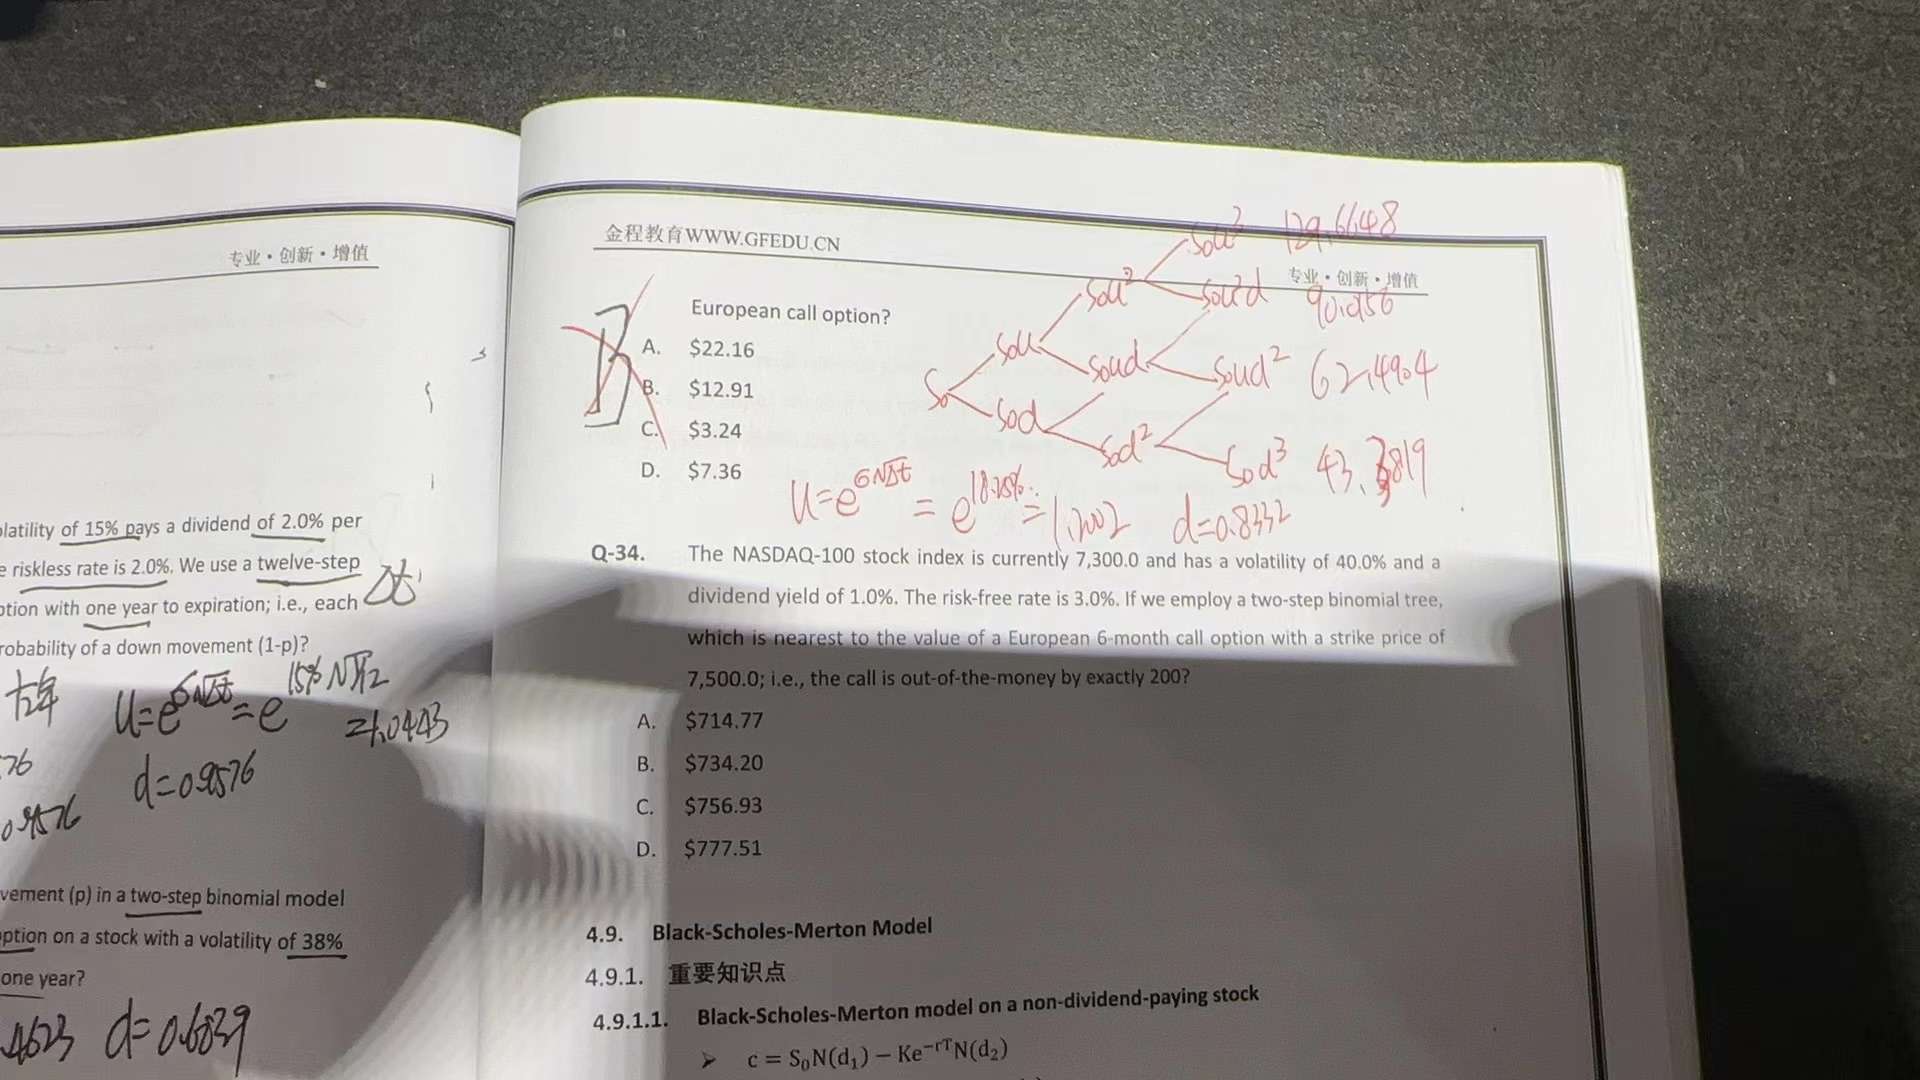 专业·创新·增值
latility of 15% pays a dividend of 2.0% per
e riskless rate is 2.0%. We use a twelve-step
Δt
ption with one year to expiration; i.e., each
robability of a down movement (1-p)?
u=e^σ√Δt = e^15%√1/12
=1.0443
76
d=0.9576
0.9576
vement (p) in a two-step binomial model
ption on a stock with a volatility of 38%
one year?
.4623 d=0.6839
金程教育WWW.GFEDU.CN
专业·创新·增值
European call option?
A. $22.16
B. $12.91
C. $3.24
D. $7.36
B
S₀
S₀u
S₀d
S₀u²
S₀ud
S₀d²
S₀u³ 129.6648
S₀u²d
S₀ud² 62.4904
S₀d³ 43.3819
u=e^σ√Δt = e^18.25% = 1.2002 d=0.8332
Q-34. The NASDAQ-100 stock index is currently 7,300.0 and has a volatility of 40.0% and a
dividend yield of 1.0%. The risk-free rate is 3.0%. If we employ a two-step binomial tree,
which is nearest to the value of a European 6-month call option with a strike price of
7,500.0; i.e., the call is out-of-the-money by exactly 200?
A. $714.77
B. $734.20
C. $756.93
D. $777.51
4.9. Black-Scholes-Merton Model
4.9.1. 重要知识点
4.9.1.1. Black-Scholes-Merton model on a non-dividend-paying stock
➢ c = S₀N(d₁) − Ke⁻ʳᵀN(d₂)